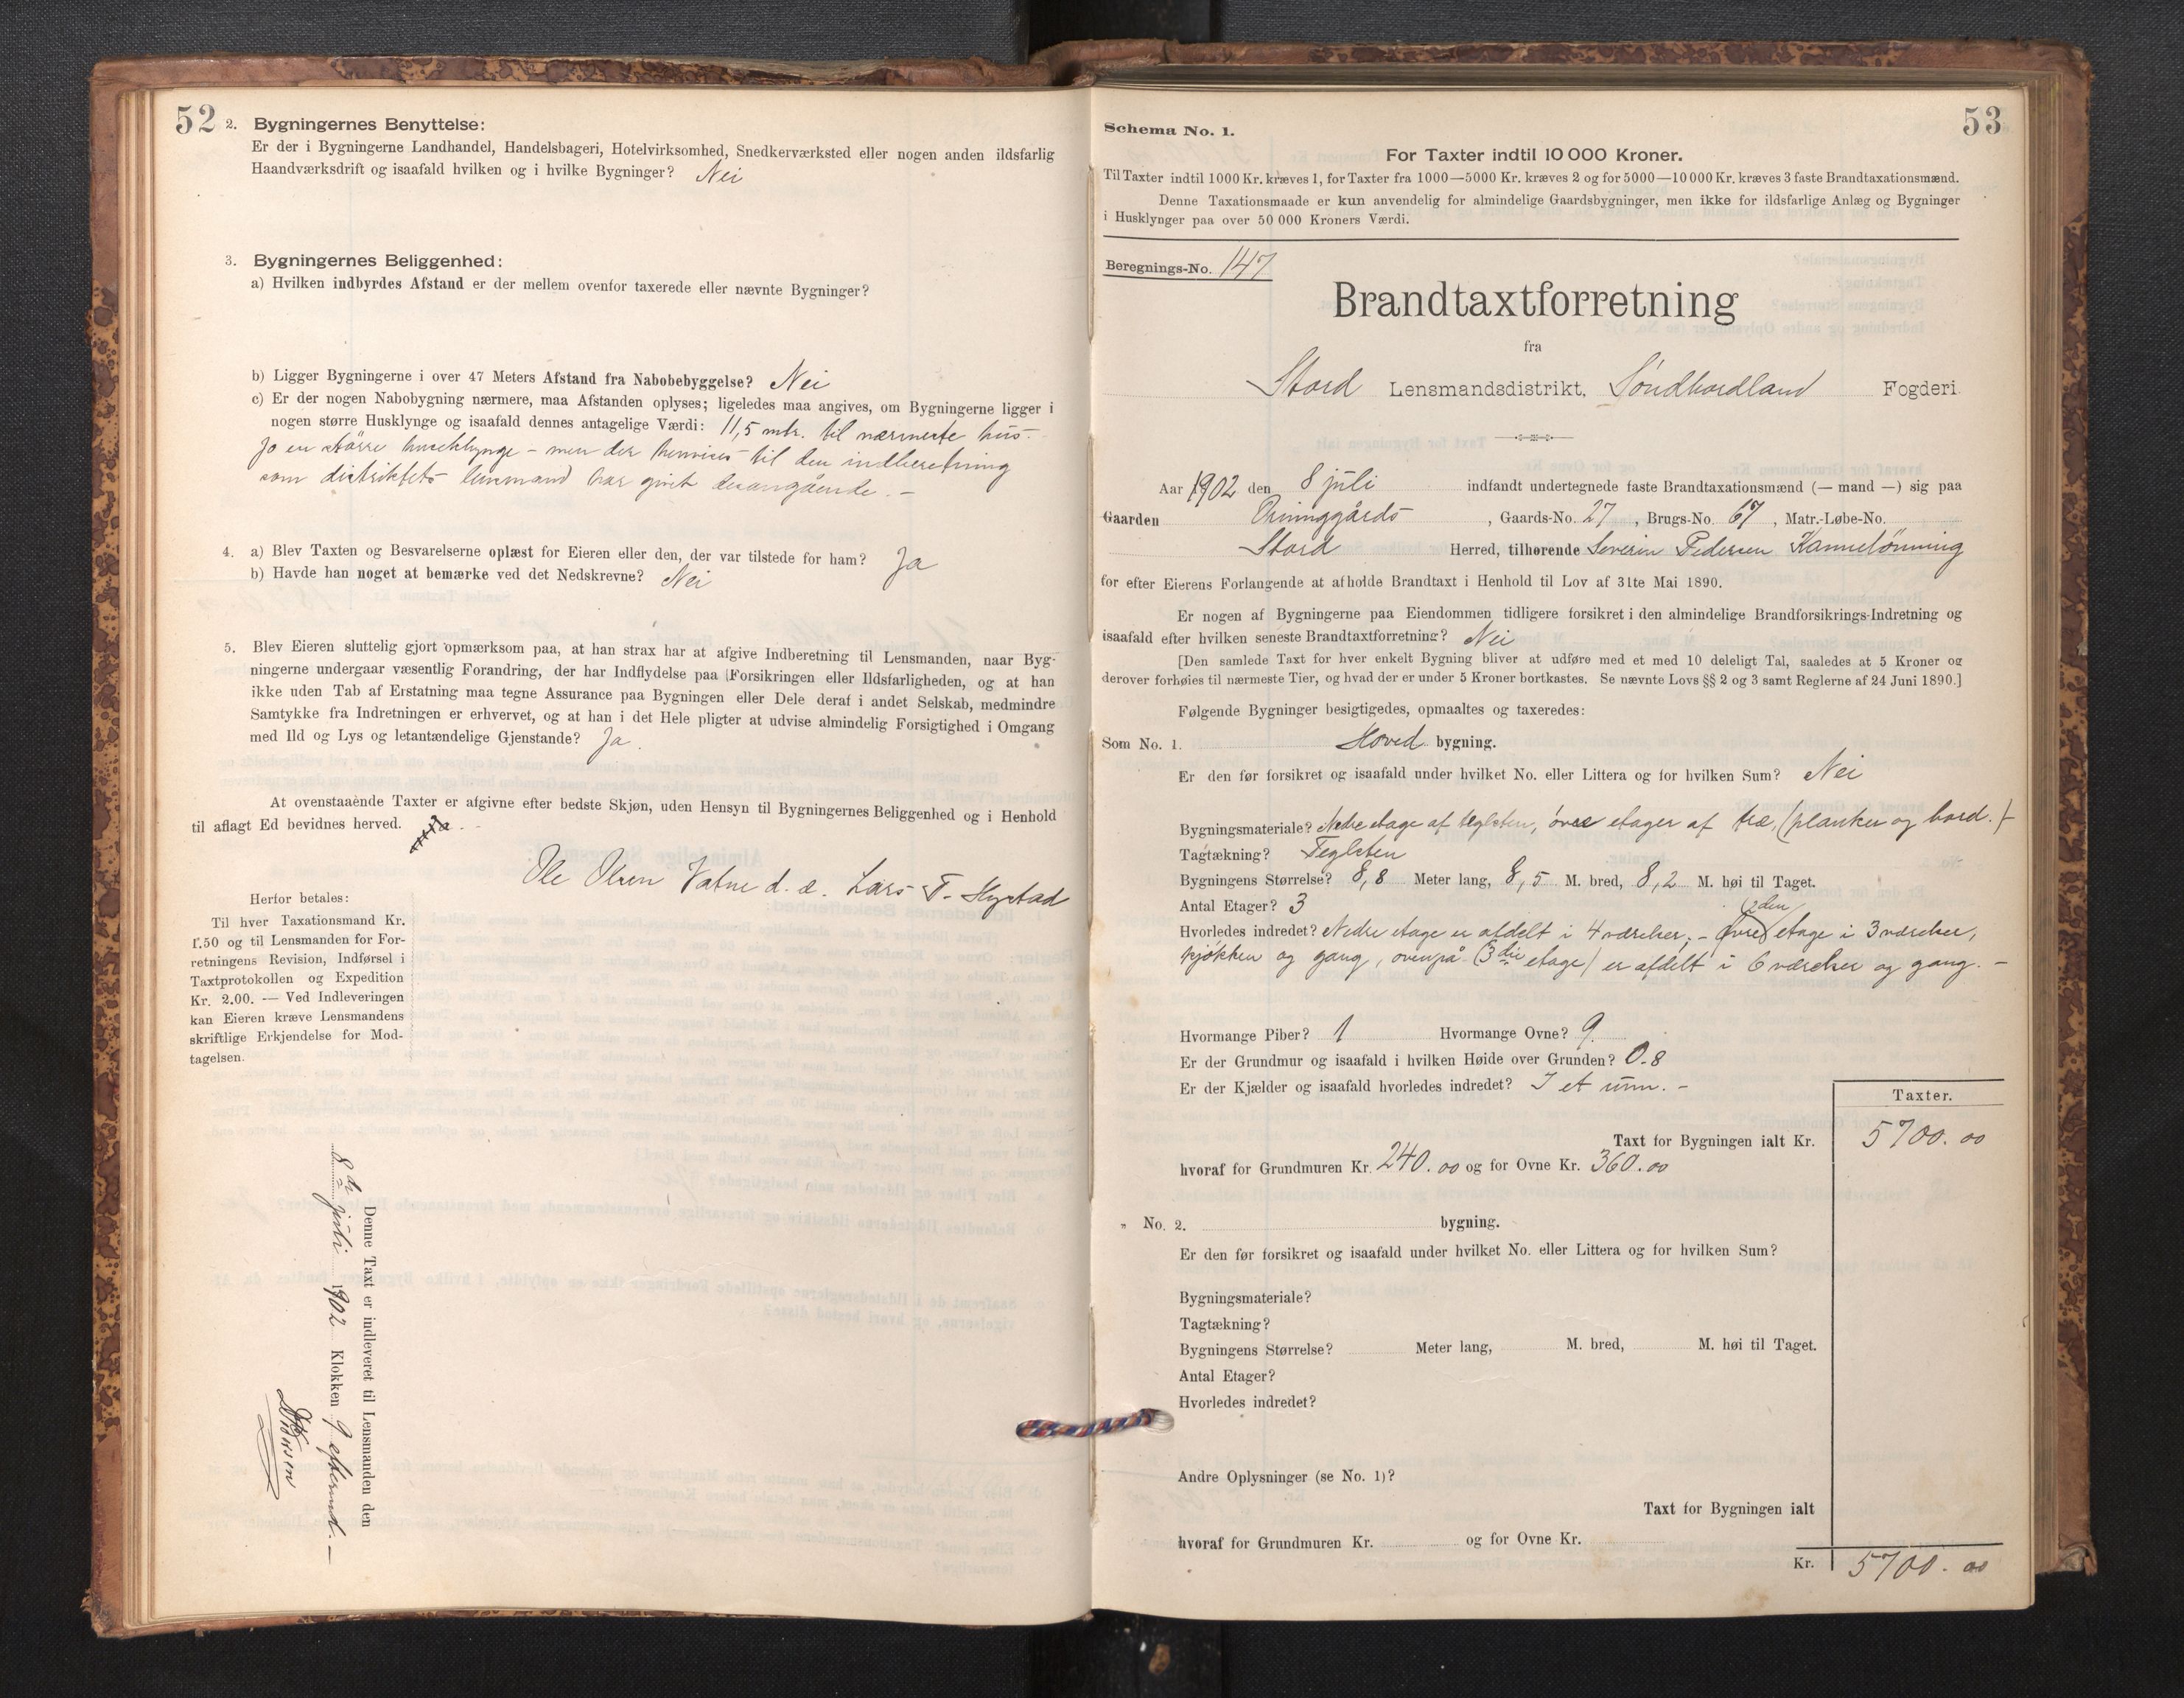 52
2. Bygningernes Benyttelse:
Er der i Bygningerne Landhandel, Handelsbageri, Hotelvirksomhed, Snedkerværksted eller nogen anden ildsfarlig
Haandværksdrift og isaafald hvilken og i hvilke Bygninger? Nei
3. Bygningernes Beliggenhed:
a) Hvilken indbyrdes Afstand er der mellem ovenfor taxerede eller nævnte Bygninger?
b) Ligger Bygningerne i over 47 Meters Afstand fra Nabobebyggelse? Nei
c) Er der nogen Nabobygning nærmere, maa Afstanden oplyses; ligeledes maa angives, om Bygningerne ligger i
nogen større Husklynge og isaafald dennes antagelige Værdi: 11,5 mtr. til nærmeste hus.-
Jo en större huseklynge - men der henvises til den indberetning
som distriktets lensmand har givet desangående. -
4. a) Blev Taxten og Besvarelserne oplæst for Eieren eller den, der var tilstede for ham? Ja
b) Havde han noget at bemærke ved det Nedskrevne? Nei
5. Blev Eieren sluttelig gjort opmærksom paa, at han strax har at afgive Indberetning til Lensmanden, naar Byg-
ningerne undergaar væsentlig Forandring, der har Indflydelse paa Forsikringen eller Ildsfarligheden, og at han
ikke uden Tab af Erstatning maa tegne Assurance paa Bygningen eller Dele deraf i andet Selskab, medmindre
Samtykke fra Indretningen er erhvervet, og at han i det Hele pligter at udvise almindelig Forsigtighed i Omgang
med Ild og Lys og letantændelige Gjenstande? Ja.
At ovenstaaènde Taxter er afgivne efter bedste Skjøn, uden Hensyn til Bygningernes Beliggenhed og i Henhold
til aflagt Ed bevidnes herved.
Ole Olsen Vatne d. æ. Lars T. Hystad
Herfor betales:
Til hver Taxationsmand Kr.
1.50 og til Lensmanden for For-
retningens Revision, Indførsel i
Taxtprotokollen og Expedition
Kr. 2.00. — Ved Indleveringen
kan Eieren kræve Lensmandens
skriftlige Erkjendelse for Mod-
tagelsen.
Denne Taxt er indleveret til Lensmanden den
8de juli 1902 Klokken 9 eftermd. -
53
Schema No. 1.
For Taxter indtil 10 000 Kroner.
Til Taxter indtil 1000 Kr. kræves 1, for Taxter fra 1000—5000 Kr. kræves 2 og for 5000—10 000 Kr. kræves 3 faste Brandtaxationsmænd.
Denne Taxationsmaade er kun anvendelig for almindelige Gaardsbygninger, men ikke for ildsfarlige Anlæg og Bygninger
i Husklynger paa over 50 000 Kroners Værdi.
Beregnings-No. 147
Brandtaxtforretning
fra
Stord Lensmandsdistrikt, Söndhordland Fogderi
Aar 1902 den 8 juli indfandt undertegnede faste Brandtaxationsmænd (— mand —) sig paa
Gaarden , Gaards-No. 27, Brugs-No. 67, Matr.-Løbe-No.
Stord Herred, tilhørende Severin Pedersen Kannelönning
for efter Eierens Forlangende at afholde Brandtaxt i Henhold til Lov af 31te Mai 1890.
Er nogen af Bygningerne paa Eiendommen tidligere forsikret i den almindelige Brandforsikrings-Indretning og
isaafald efter hvilken seneste Brandtaxtforretning? Nei
[Den samlede Taxt for hver enkelt Bygning bliver at udføre med et med 10 deleligt Tal, saaledes at 5 Kroner og
derover forhøies til nærmeste Tier, og hvad der er under 5 Kroner bortkastes. Se nævnte Lovs §§ 2 og 3 samt Reglerne af 24 Juni 1890.]
Følgende Bygninger besigtigedes, opmaaltes og taxeredes:
Som No. 1. Hoved bygning.
Er den før forsikret og isaafald under hvilket No. eller Littera og for hvilken Sum? Nei
Bygningsmateriale? Nedre etage af teglsten, övre etager af træ, (planker og bord.)-
Tagtækning? Teglsten
Bygningens Størrelse? 8,8 Meter lang, 8,5 M. bred, 8,2 M. høi til Taget.
Antal Etager? 3
(2den
Hvorledes indredet? Nedre etage er afdelt i 4 værelser; - övre) etage i 3 værelser,
kjökken og gang, ovenpå (3die etage) er afdelt i 6 værelser og gang. -
Hvormange Piber? 1 Hvormange Ovne? 9.
Er der Grundmur og isaafald i hvilken Høide over Grunden? 0.8
Er der Kjælder og isaafald hvorledes indredet? I et rum. -
Taxter.
Taxt for Bygningen ialt Kr. 5700. 00
hvoraf for Grundmuren Kr. 240. 00 og for Ovne Kr. 360. 00
" No. 2. bygning.
Er den før forsikret og isaafald under hvilket No. eller Littera og for hvilken Sum?
Bygningsmateriale?
Tagtækning?
Bygningens Størrelse? Meter lang, M. bred, M. høi til Taget.
Antal Etager?
Hvorledes indredet?
Andre Oplysninger (se No. 1)?
Taxt for Bygningen ialt
hvoraf for Grundmuren Kr. og for Ovne Kr.
Kr. 5700. 00